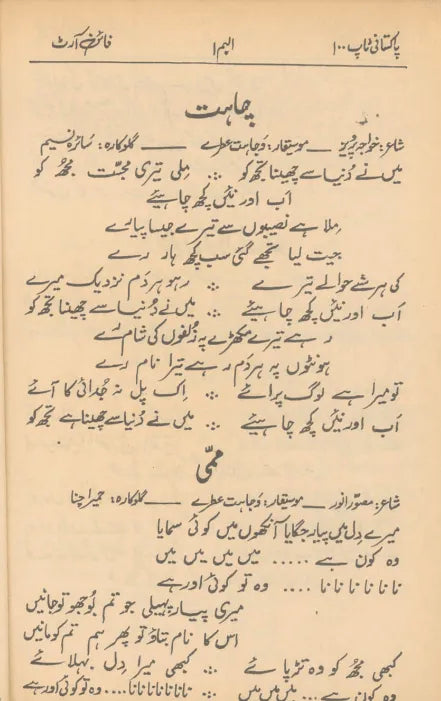 پاکستانی ٹاپ ۱۰۰ البم ۱ فائن آرٹ
چاہت
شاعر: خواجہ پرویز ــ موسیقار: وجاہت عطرے ــ گلوکارہ: سائرہ نسیم
میں نے دُنیا سے چھینا تجھ کو ؞ مِلی تیری محبّت مجھ کو
اَب اور نئیں کچھ چاہیئے
مِلا ہے نصیبوں سے تیرے جیسا پیارے
جیت لیا تجھے گئی سب کچھ ہار رے
کی ہر شے حوالے تیرے ؞ رہو ہر دَم نزدیک میرے
اَب اور نئیں کچھ چاہیئے ؞ میں نے دُنیا سے چھینا تجھ کو
رہے تیرے مکھڑے پہ زُلفوں کی شام رے
ہونٹوں پہ ہر دَم رہے تیرا نام رے
تو میرا ہے لوگ پرائے ؞ اِک پل نہ جُدائی کا آئے
اَب اور نئیں کچھ چاہیئے ؞ میں نے دُنیا سے چھینا ہے تجھ کو
ممّی
شاعر: مصوّر انور ــ موسیقار: وجاہت عطرے ــ گلوکارہ: حمیرا چنا
میرے دِل میں پیار جگایا آنکھوں میں کوئی سمایا
وہ کون ہے ..... میں میں میں میں
نا نا نا نا نا نا .... وہ تو کوئی اور ہے
میری پیار پہیلی جو تم بُوجھو تو جانیں
اس کا نام بتاؤ تو پھر ہم تم کو مانیں
کبھی مجھ کو وہ تڑپائے ؞ کبھی میرا دِل بہلائے
وہ کون ہے ... میں میں میں ؞ نا نا نا نا نا نا .... وہ تو کوئی اور ہے